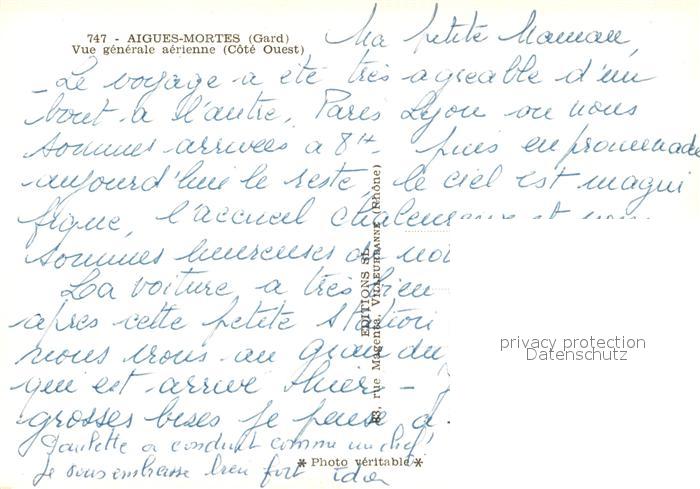 747 - AIGUES-MORTES (Gard)
Vue générale aérienne (Côté Ouest)
Ma petite Maman,
- Le voyage a été très agréable d'un
bout a l'autre, Paris Lyon ou nous
sommes arrivées a 8H - puis en promenade
aujourd'hui le reste, le ciel est magni
fique, l'accueil chaleureux et
sommes heureuses de
La voiture a très bien
après cette petite
nous irons au Grau du
qui est arrivé hier -
grosses bises je pense a
Paulette a conduit comme un chef
je vous embrasse bien fort
EDITIONS SL
83, rue Magenta, VILLEURBANNE (Rhône)
* Photo véritable *
privacy protection
Datenschutz